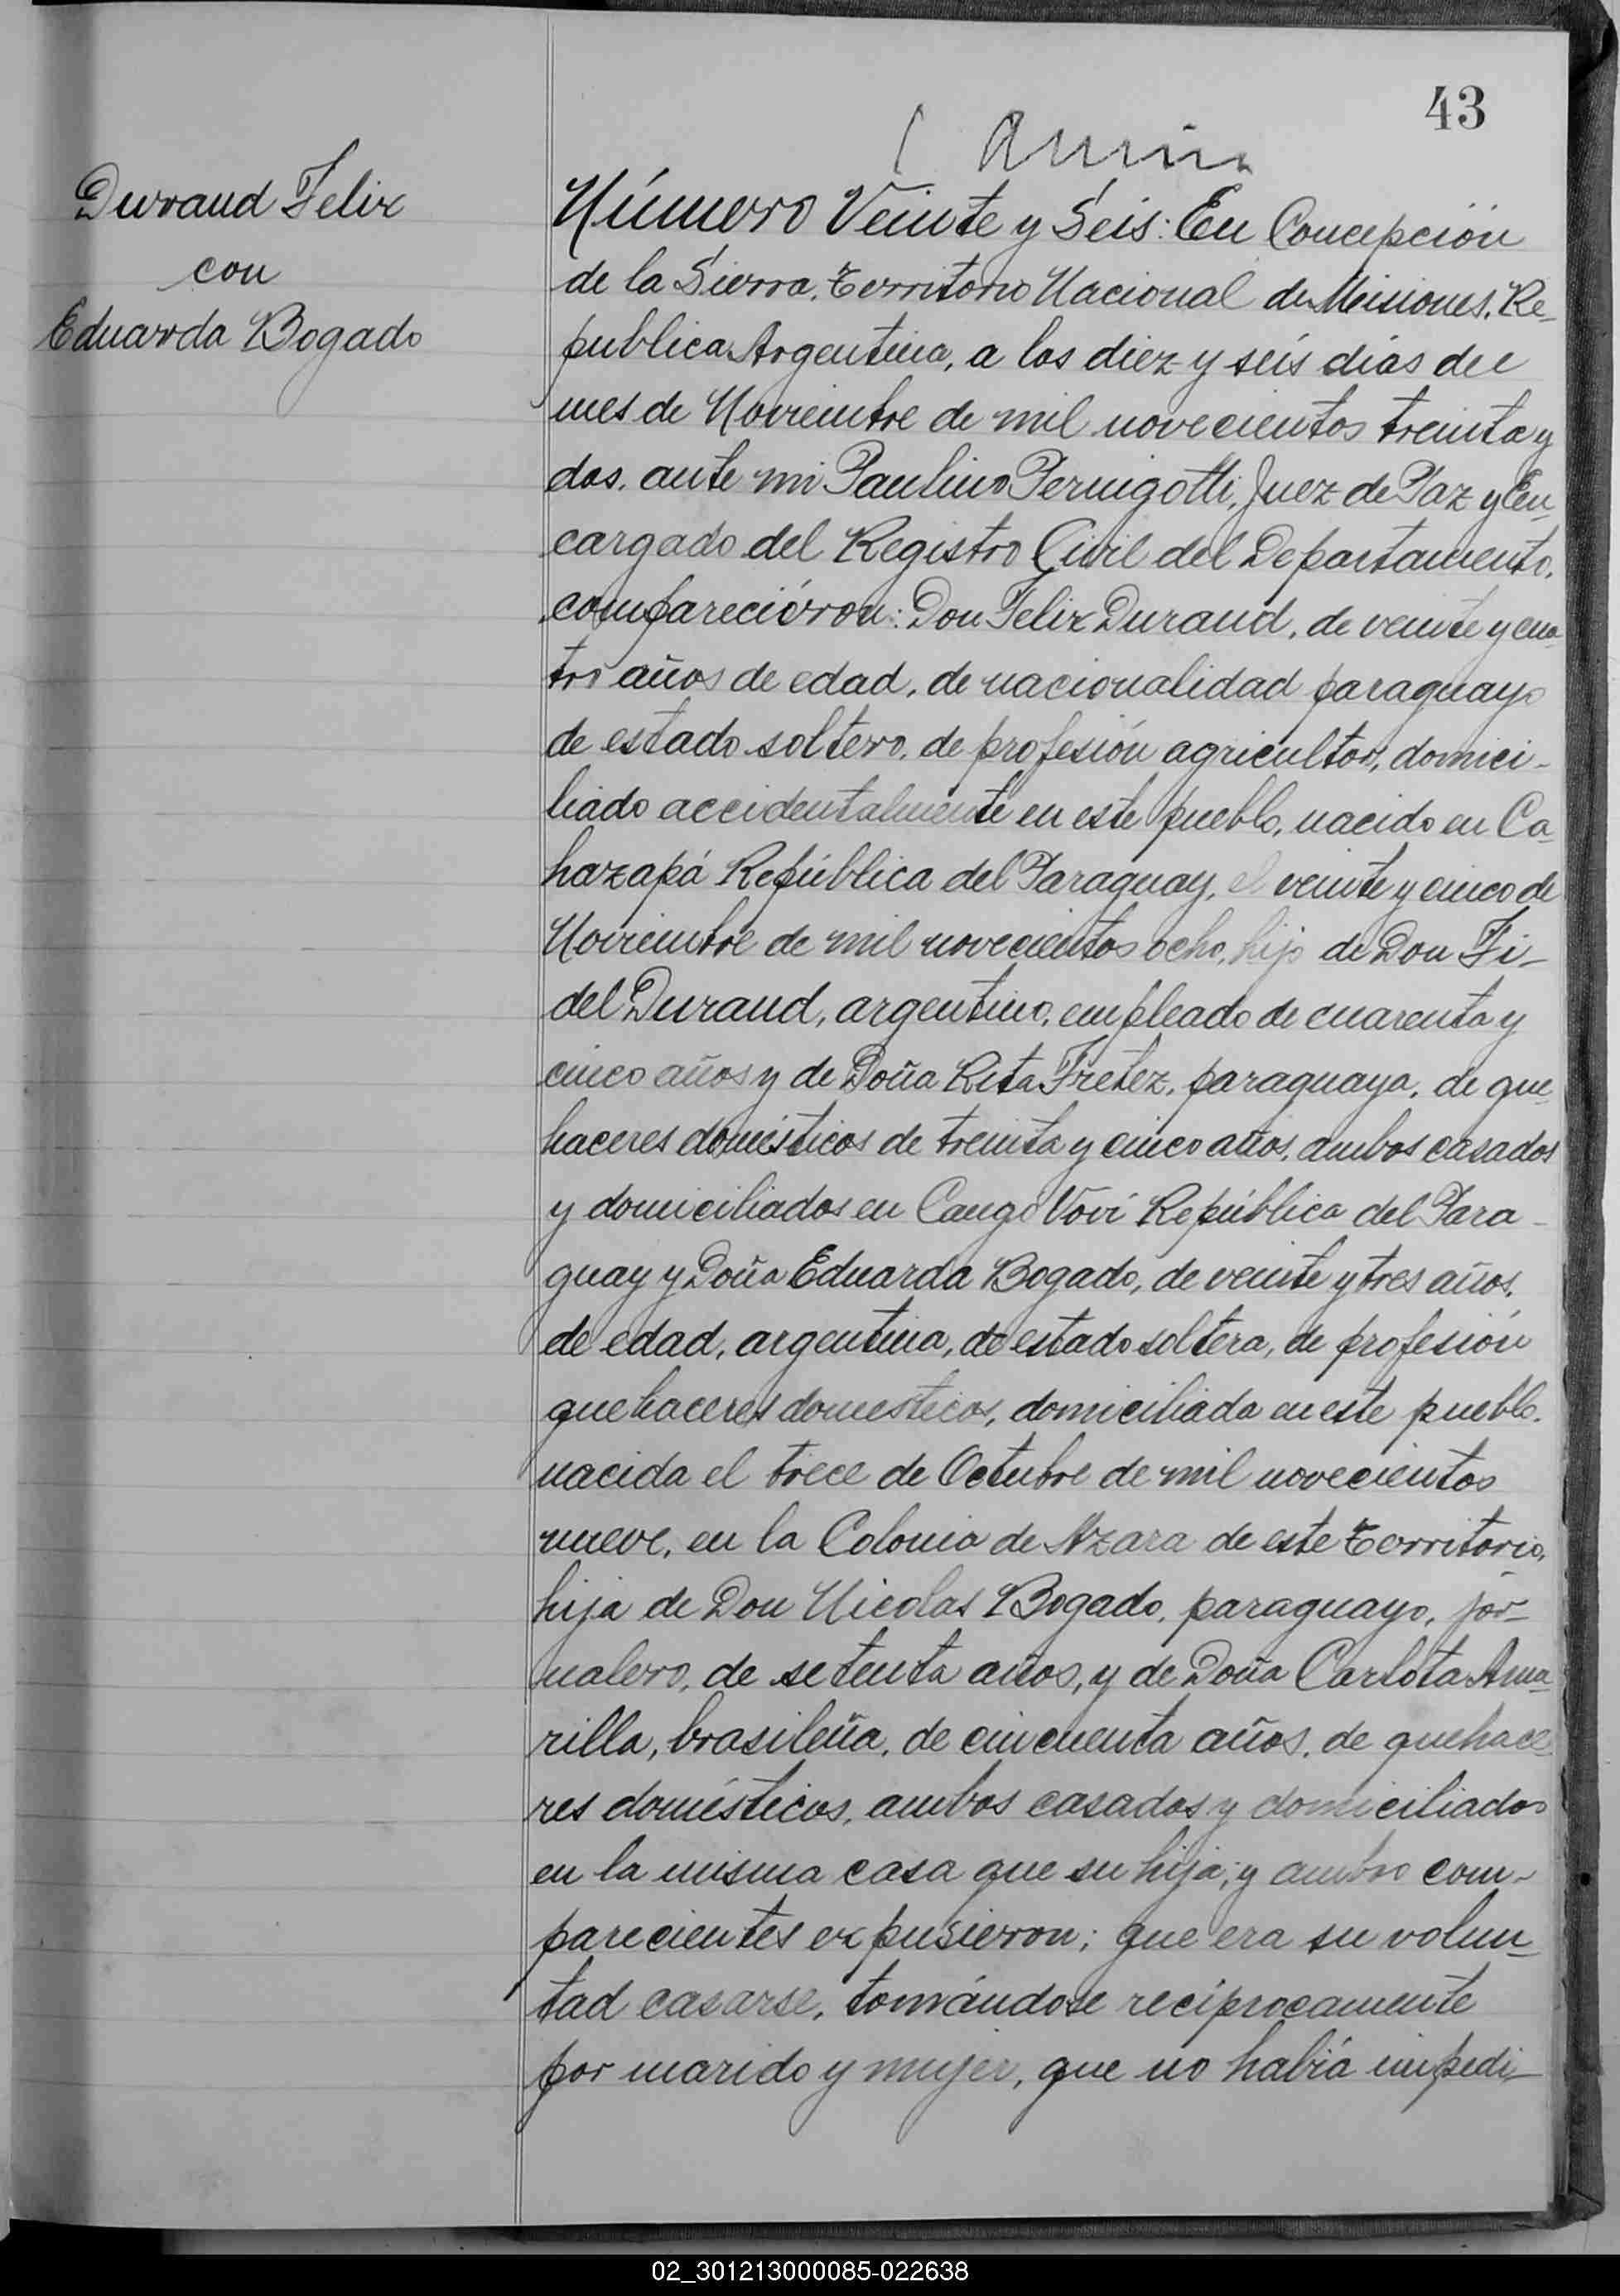 43
Durand Felix
con
Eduarda Bogado
Número Veinte y Seis: En Concepción
de la Sierra, Territorio Nacional de Misiones, Re-
publica Argentina, a los diez y seis días del
mes de Noviembre de mil novecientos treinta y
dos, ante mi Paulino Pernigotti, Juez de Paz y En-
cargado del Registro Civil del Departamento,
comparecieron: Don Felix Durand, de veinte y cua-
tro años de edad, de nacionalidad paraguayo
de estado soltero, de profesión agricultor, domici-
liado accidentalmente en este pueblo, nacido en Ca-
hazapá República del Paraguay, el veinte y cinco de
Noviembre de mil novecientos ocho, hijo de Don Fi-
del Durand, argentino, empleado de cuarenta y
cinco años y de Doña Rita Fretez, paraguaya, de que-
haceres domésticos de treinta y cinco años, ambos casados
y domiciliados en Cangó Voví República del Para-
guay y Doña Eduarda Bogado, de veinte y tres años,
de edad, argentina, de estado soltera, de profesión
quehaceres domesticos, domiciliada en este pueblo,
nacida el trece de Octubre de mil novecientos
nueve, en la Colonia de Azara de este Territorio,
hija de Don Nicolas Bogado, paraguayo, jor-
nalero, de setenta años, y de Doña Carlota Ama-
rilla, brasileña, de cincuenta años, de quehace-
res domésticos, ambos casados y domiciliados
en la misma casa que su hija; y ambos com-
parecientes expusieron; que era su volun-
tad casarse, tomándose recíprocamente
por marido y mujer, que no había impedi-
02_301213000085-022638